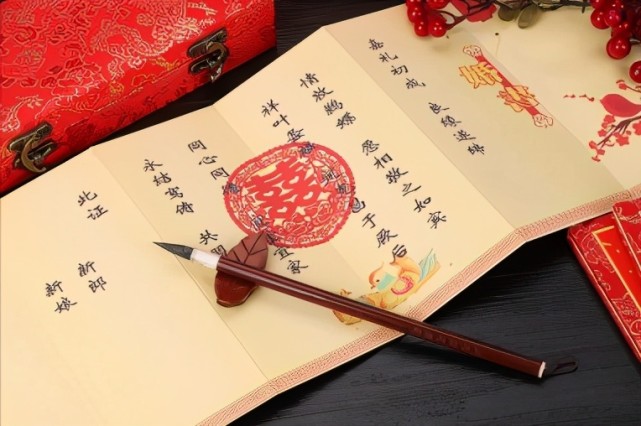 婚书
嘉礼初成 良缘遂缔
情敦鹣鲽 愿相敬之如宾
祥叶螽 昌于厥后
同心同 宜家
永结鸾俦 共盟
此证
新郎
新娘